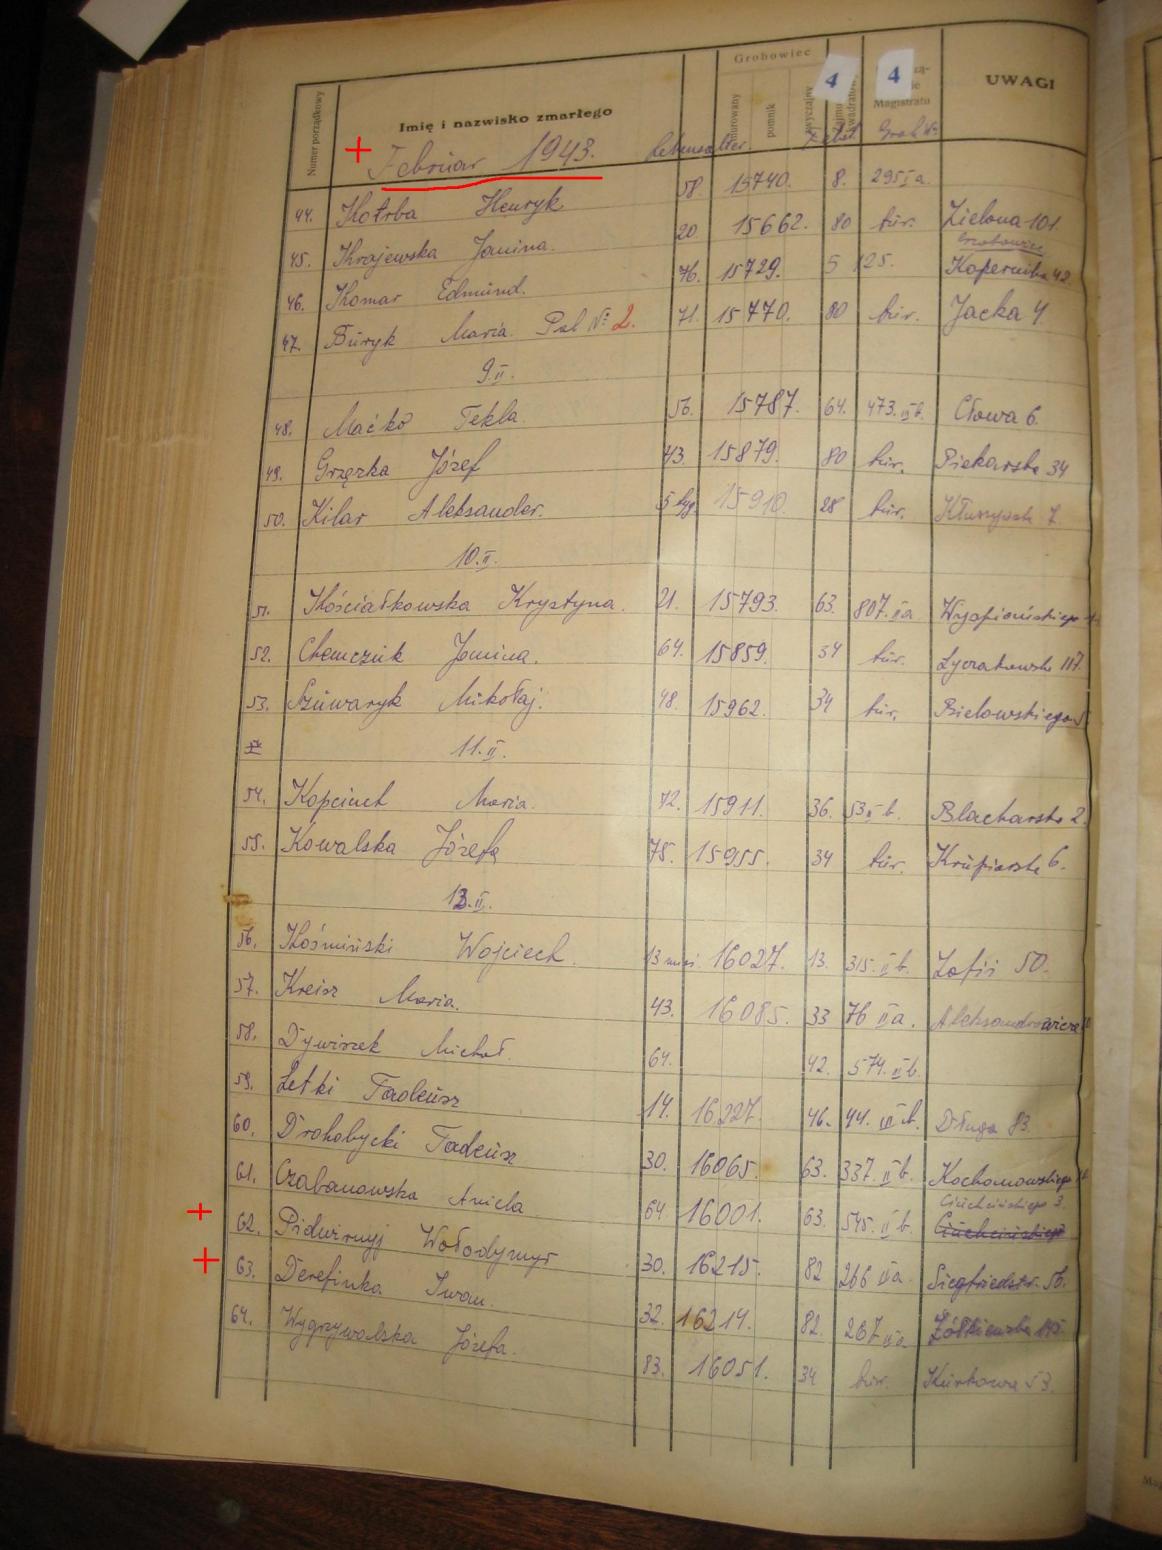 Grobowiec
Numer porządkowy
Imię i nazwisko zmarłego
murowany
pomnik
zwyczajny
4
4
Magistratu
UWAGI
Februar 1943.
Lebensalter
Feld
Grab Nr.
44. Kotrba Henryk 58 15740. 8. 295 I a.
45. Krajewska Janina. 20 15662. 80 tur. Zielona 101
Grobowiec
46. Komar Edmund. 76. 15729. 5 125. Kopernika 42
47. Buryk Maria. Pol № 2. 71. 15770. 80 tur. Jacka 4
9.II.
48. Maćko Tekla 56. 15787. 64. 473. III b. Cłowa 6.
49. Grzęzka Józef 43. 15879. 80 tur. Piekarska 34
50. Kilar Aleksander. 5 tyg. 15910. 28 tur. 7
10.II.
51. Kościałkowska Krystyna. 21. 15793. 63. 807. II a Wyspiańskiego
52. Chemczuk Janina. 64. 15859. 34 tur. Łyczakowska 117.
53. Szuwaryk Mikołaj. 48. 15962. 34 tur. Bielowskiego 5
11.II.
54. Kopciuch Maria. 72. 15911. 36. 53 II b. Blacharska 2.
55. Kowalska Józefa 75. 15955. 34 tur. Krupiarska 6.
13.II.
56. Kośmiński Wojciech. 13 mies 16027. 13. 315. II b. Zofii 50.
57. Kreisz Maria. 43. 16085. 33 76 II a. Aleksandrowicza
58. Dywiszek Michał. 64. 42. 574. III b.
59. Letki Tadeusz 14. 16227. 46. 44. III b. Długa 83.
60. Drohobycki Tadeusz 30. 16065. 63. 337. II b. Kochanowskiego
61. Czabanowska Aniela 64 16001. 63. 545. II b. Ciuchcińskiego 3.
Ciuchcińskiego
62. Pidwirnyj Wołodymyr 30. 16215. 82 266 III a. Siegfriedstr. 56.
63. Derefinka Iwan. 32. 16214. 82. 267 III a. Żółkiewska 145.
64. Wygrzywalska Józefa. 83. 16051. 34 tur. Kurkowa 53.